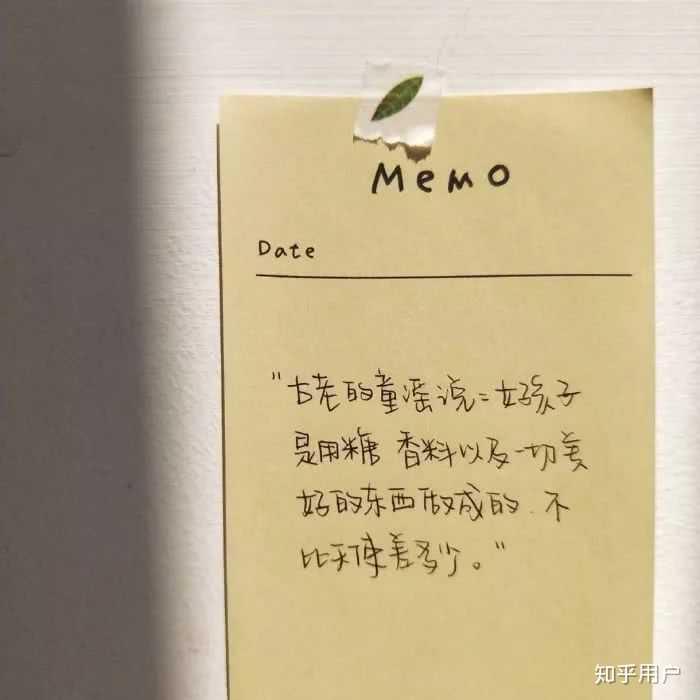 Memo
Date
"古老的童谣说：好孩子
是用糖 香料以及一切美
好的东西做成的.不
比天使差多少。"
知乎用户